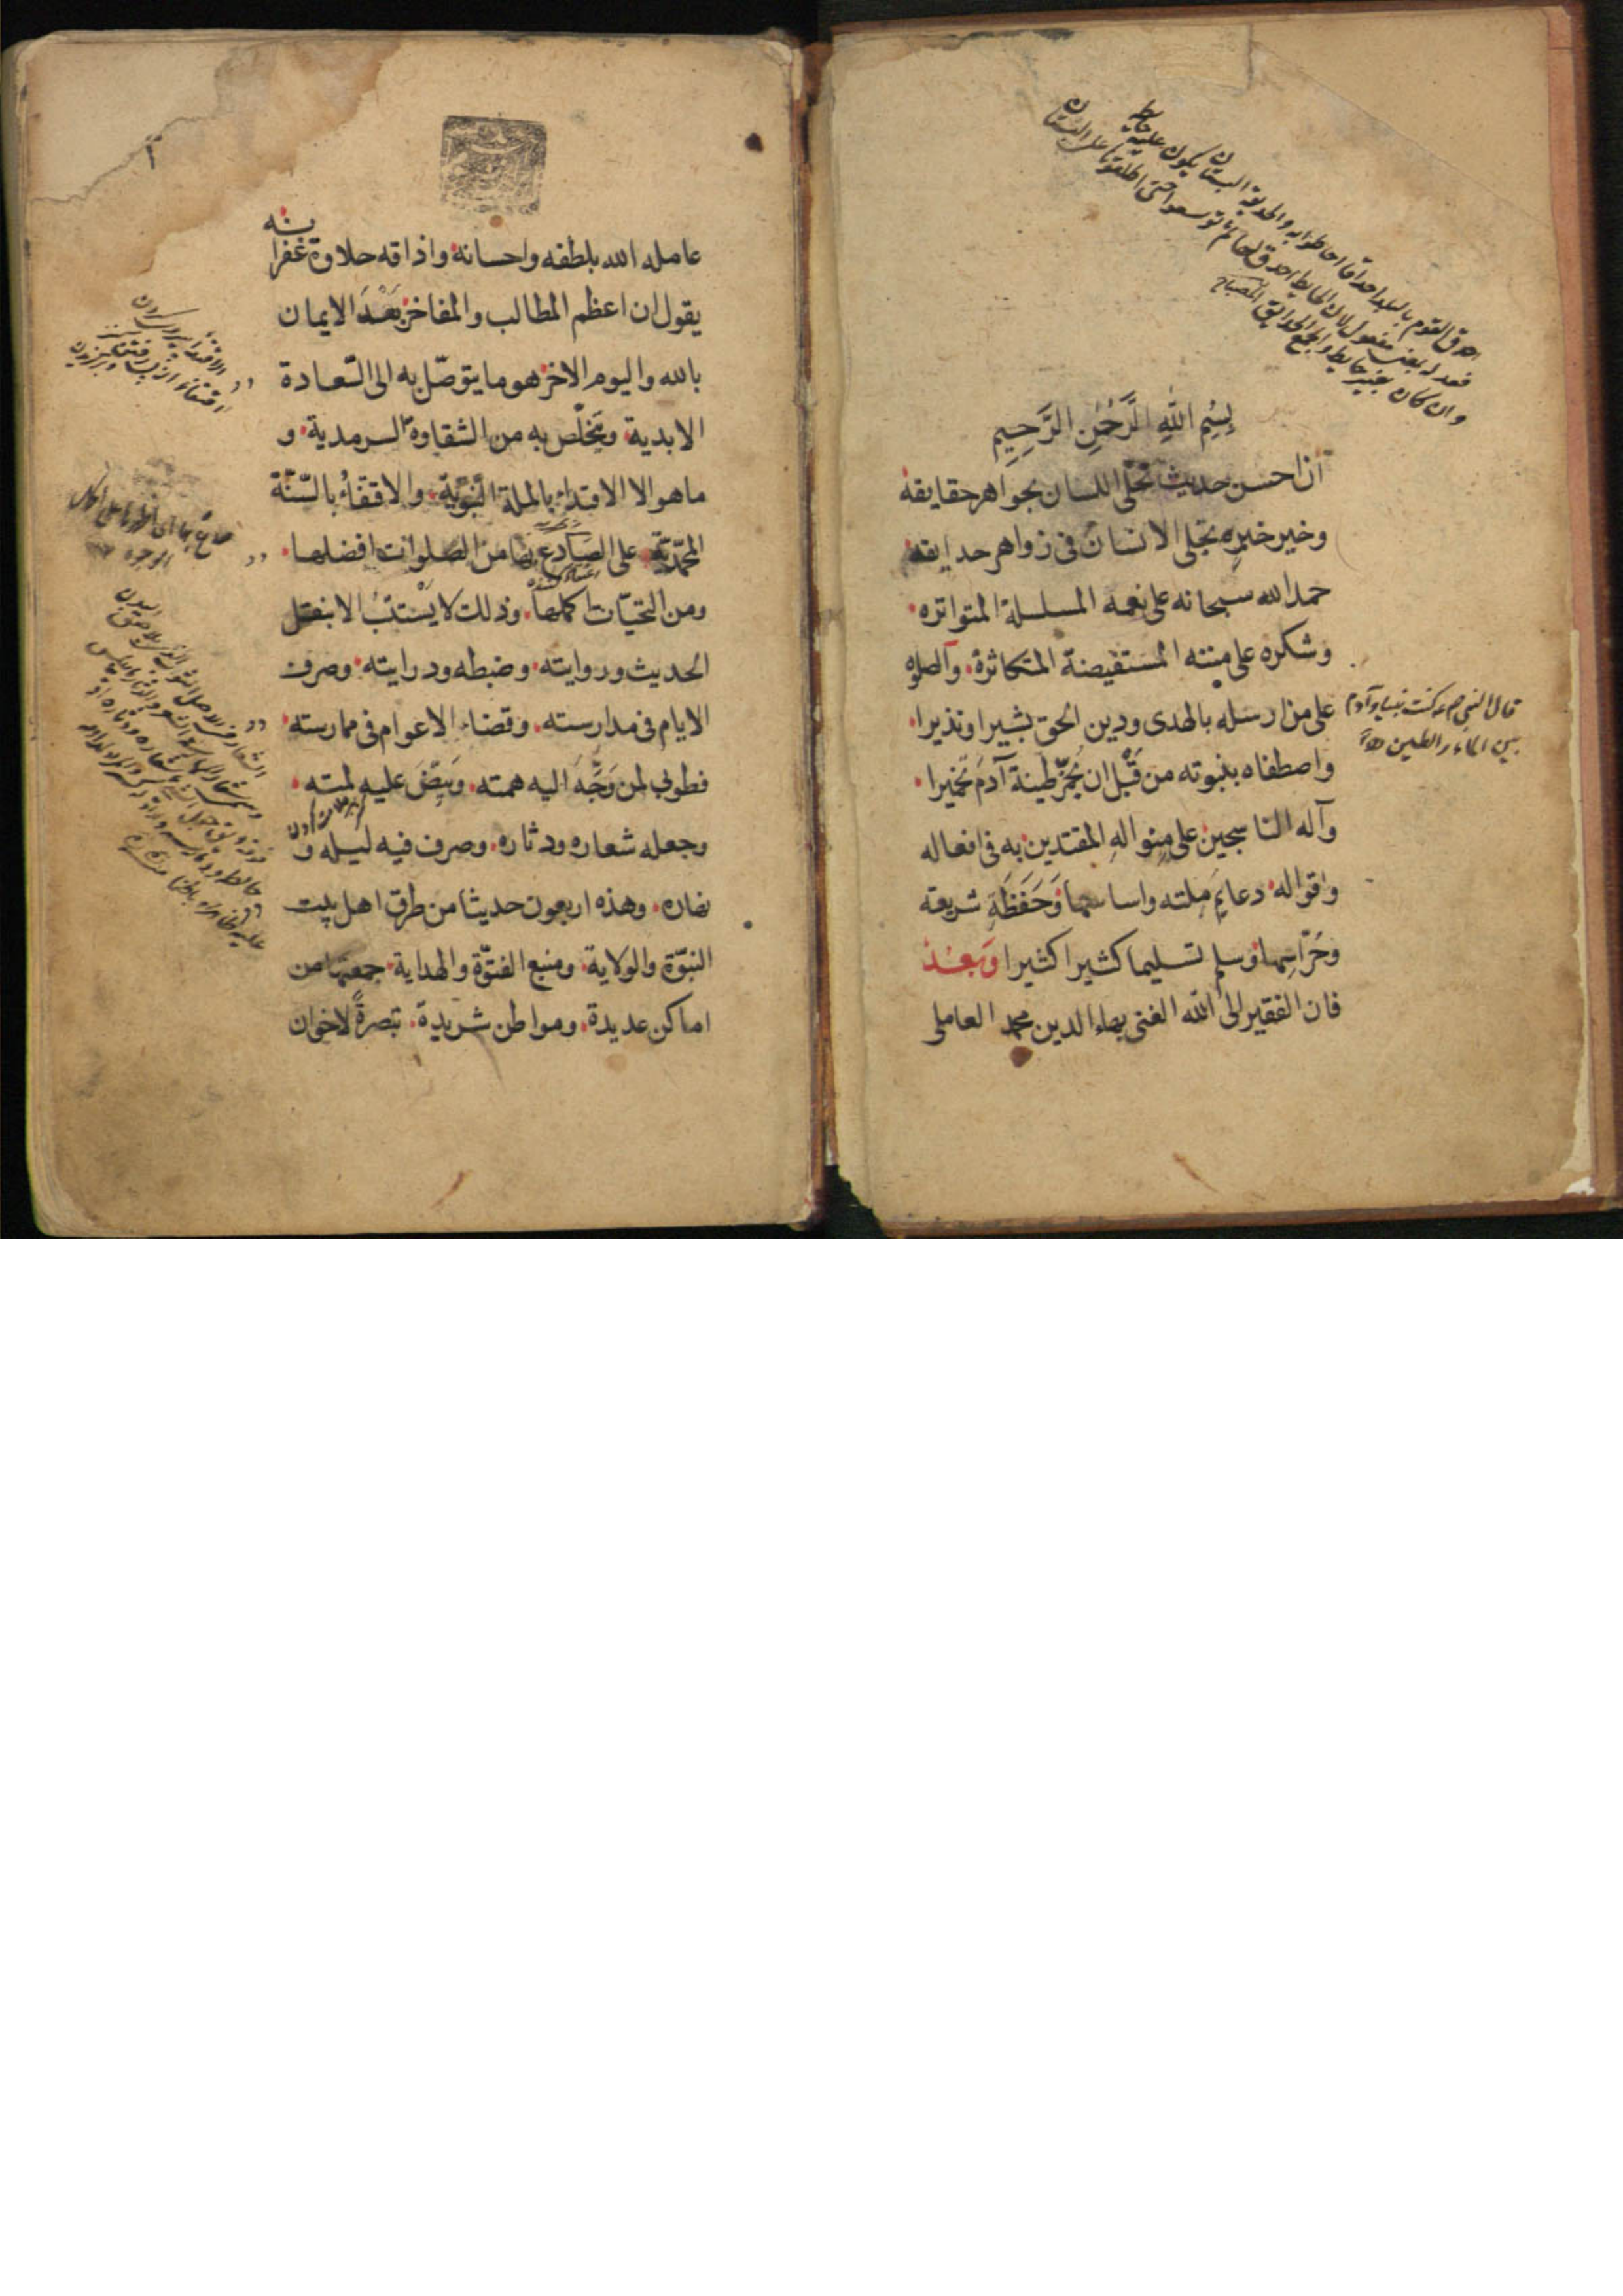 بِسْمِ اللهِ الرَّحْمٰنِ الرَّحِيمِ
ان احسن حديث تحلى اللسان بجواهر حقايقه
وخير خبرٍ تجلى الانسان فى زواهر حدايقه
حمد الله سبحانه على نعمه المسلسلة المتواتره
وشكره على مننه المستفيضة المتكاثرة والصلوه
على من ارسله بالهدى ودين الحق بشيرا ونذيرا
واصطفاه بنبوته من قَبْل ان يُخمِّر طينة آدَمَ تخميرا
وآله الناسجين على منوالهِ المقتدين به فى افعاله
واقواله دعايم مِلته واساسها وَحَفَظَةِ شريعته
وحُرّاسِها وسلم تسليما كثيرا كثيرا وَبَعْدُ
فان الفقير الى الله الغنى بهاء الدين محمد العاملى
احدق القوم بالبلد احداقا احاطوا به والحديقة البستان يكون عليه حايط
فعيلة بمعنى مفعول لان الحايط احدق بها ثم توسعوا حتى اطلقوا على البستان
وان كان بغير حايط والجمع الحدائق المصباح
قال النبى ص ع كنت نبيا وآدم
بين الماء والطين
عامله الله بلطفه واحسانه واذاقه حلاوة غفرانه
يقول ان اعظم المطالب والمفاخر بَعْدَ الايمان
بالله واليوم الاخر هو ما يتوصّل به الى السّعادة
الابدية ويتخلّص به من الشقاوة السرمدية و
ما هو الا الاقتداء بالملة النبويّة والاقتفاء بالسّنّة
المحمّديّة على الصادع بها من الصلوات افضلها
ومن التحيّات اكملها وذلك لا يَسْتتبُ الا بنقل
الحديث وروايته وضبطه ودرايته وصرف
الايام فى مدارسته وقضاء الاعوام فى ممارسته
فطوبى لمن وَجَّهَ اليه همته وَبيّضَ عليه لمته
وجعله شعاره ودثاره وصرف فيه ليله و
نهاره وهذه اربعون حديثا من طرق اهل بيت
النبوّة والولاية ومنبع الفتوّة والهداية جمعتها من
اماكن عديدة ومواطن شريدة تبصرةً لاخوان